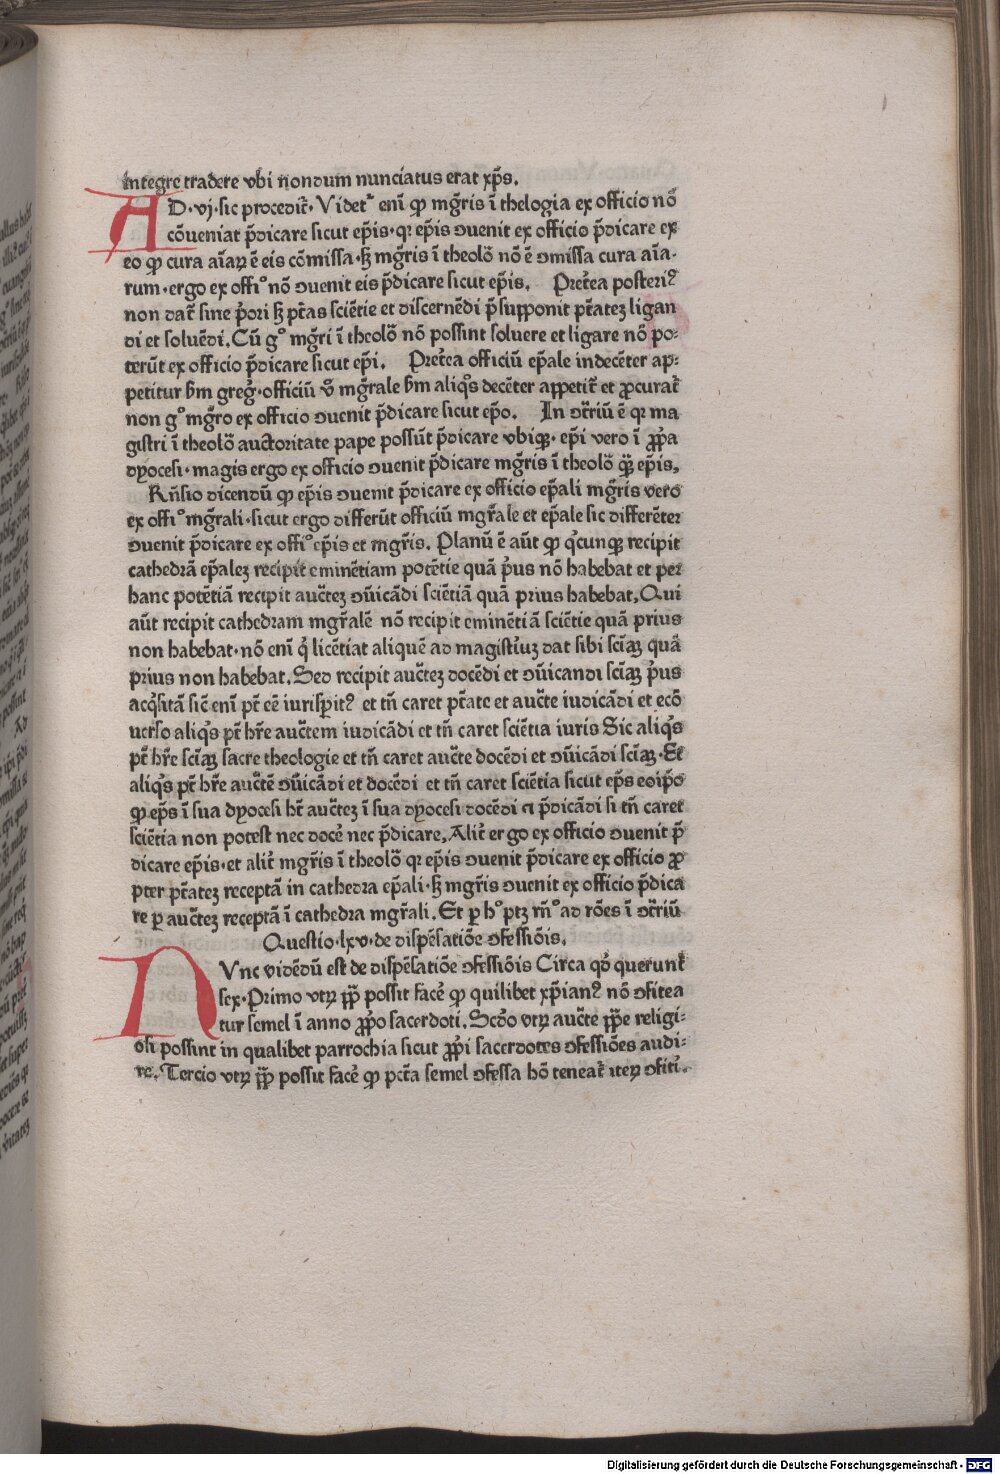 integre tradere vbi nondum nunciatus erat xp̄s.
AD·vj·sic procedit᷑·Videt᷑ enī ꝙ mgr̄is ī thelogia ex officio nō
cōueniat p̄dicare sicut ep̄is·qꝛ ep̄is ↄuenit ex officio p̄dicare ex
eo ꝙ cura aīaꝝ ē eis cōmissa·sꝫ mgr̄is ī theolō nō ē ↄmissa cura aīa-
rum·ergo ex offiº nō ↄuenit eis p̄dicare sicut ep̄is. Pret̄ea posteriꝰ
non dat᷑ sine p̄ori sꝫ pt̄as sciētie et discernēdi p̄supponit pt̄atez ligan
di et soluēdi. Cū gº mgr̄i ī theolō nō possint soluere et ligare nō po-
terūt ex officio p̄dicare sicut ep̄i. Pret̄ea officiū ep̄ale indecēter ap-
petitur bm̄ greḡ·officiū v̄o mgr̄ale bm̄ aliq̄s decēter appetit᷑ et ꝓcurat᷑
non gº mgr̄o ex officio ↄuenit p̄dicare sicut ep̄o. In ↄt̄riū ē qꝛ ma
gistri ī theolō auctoritate pape possūt p̄dicare vbiqꝫ·ep̄i vero ī ꝓp̄a
dyocesi·magis ergo ex officio ↄuenit p̄dicare mgr̄is ī theolō q̄ꝫ ep̄is,
Rn̄sio dicendū ꝙ ep̄is ↄuenit p̄dicare ex officio ep̄ali mgr̄is vero
ex offiº mgr̄ali·sicut ergo differūt officiū mgr̄ale et ep̄ale sic differēter
ↄuenit p̄dicare ex offiº ep̄is et mgr̄is. Planū ē aūt ꝙ q̄cunqꝫ recipit
cathedrā ep̄alez recipit eminētiam potētie quā p̄us nō habebat et per
hanc potētiā recipit auct̄ez ↄūicādi sciētiā quā prius habebat, Qui
aūt recipit cathedram mgr̄alē nō recipit eminētiā sciētie quā prius
non habebat·nō enī q̄ licētiat aliquē ad magist̄iuz dat sibi sciāꝫ quā
prius non habebat. Sed recipit auct̄ez docēdi et ↄūicandi sciāꝫ p̄us
acq̄sitā sic̄ enī pt̄ eē iurisp̄itꝰ et tn̄ caret pt̄ate et auct̄e iudicādi et ecō
uerso aliq̄s pt̄ hr̄e auct̄em iudicādi et tn̄ caret sciētia iuris Sic aliq̄s
pt̄ hr̄e sciāꝫ sacre theologie et tn̄ caret auct̄e docēdi et ↄūicādi sciāꝫ·Et
aliq̄s pt̄ hr̄e auct̄ē ↄūicādi et docēdi et tn̄ caret sciētia sicut ep̄s eoip̄o
ꝙ ep̄s ī sua dyocesi ht̄ auct̄ez ī sua dyocesi docēdi ⁊ p̄dicādi si tn̄ caret
sciētia non potest nec doc̄e nec p̄dicare, Alit̄ ergo ex officio ↄuenit p̄
dicare ep̄is·et alit̄ mgr̄is ī theolō qꝛ ep̄is ↄuenit p̄dicare ex officio ꝓ
pter pt̄atez receptā in cathedra ep̄ali·sꝫ mgr̄is ↄuenit ex officio p̄dica
re ꝑ auct̄ez receptā ī cathedra mgr̄ali. Et ꝑ hº ptꝫ rn̄º ad rōes ī ↄt̄riū
Questio·lxv·de dispēsatiōe ↄfessiōis.
NVnc vidēdū est de dispēsatiōe ↄfessiōis Circa qd̄ querunt᷑
sex·Primo vtꝝ pp̄ possit fac̄e ꝙ quilibet xp̄ianꝰ nō ↄfitea
tur semel ī anno ꝓp̄o sacerdoti. Scd̄o vtꝝ auct̄e pp̄e religi-
osi possint in qualibet parrochia sicut ꝓp̄i sacerdotes ↄfessiōes audi-
re. Tercio vtꝝ pp̄ possit fac̄e ꝙ pct̄a semel ↄfessa hō teneat᷑ iteꝝ ↄfiti·
Digitalisierung gefördert durch die Deutsche Forschungsgemeinschaft - DFG